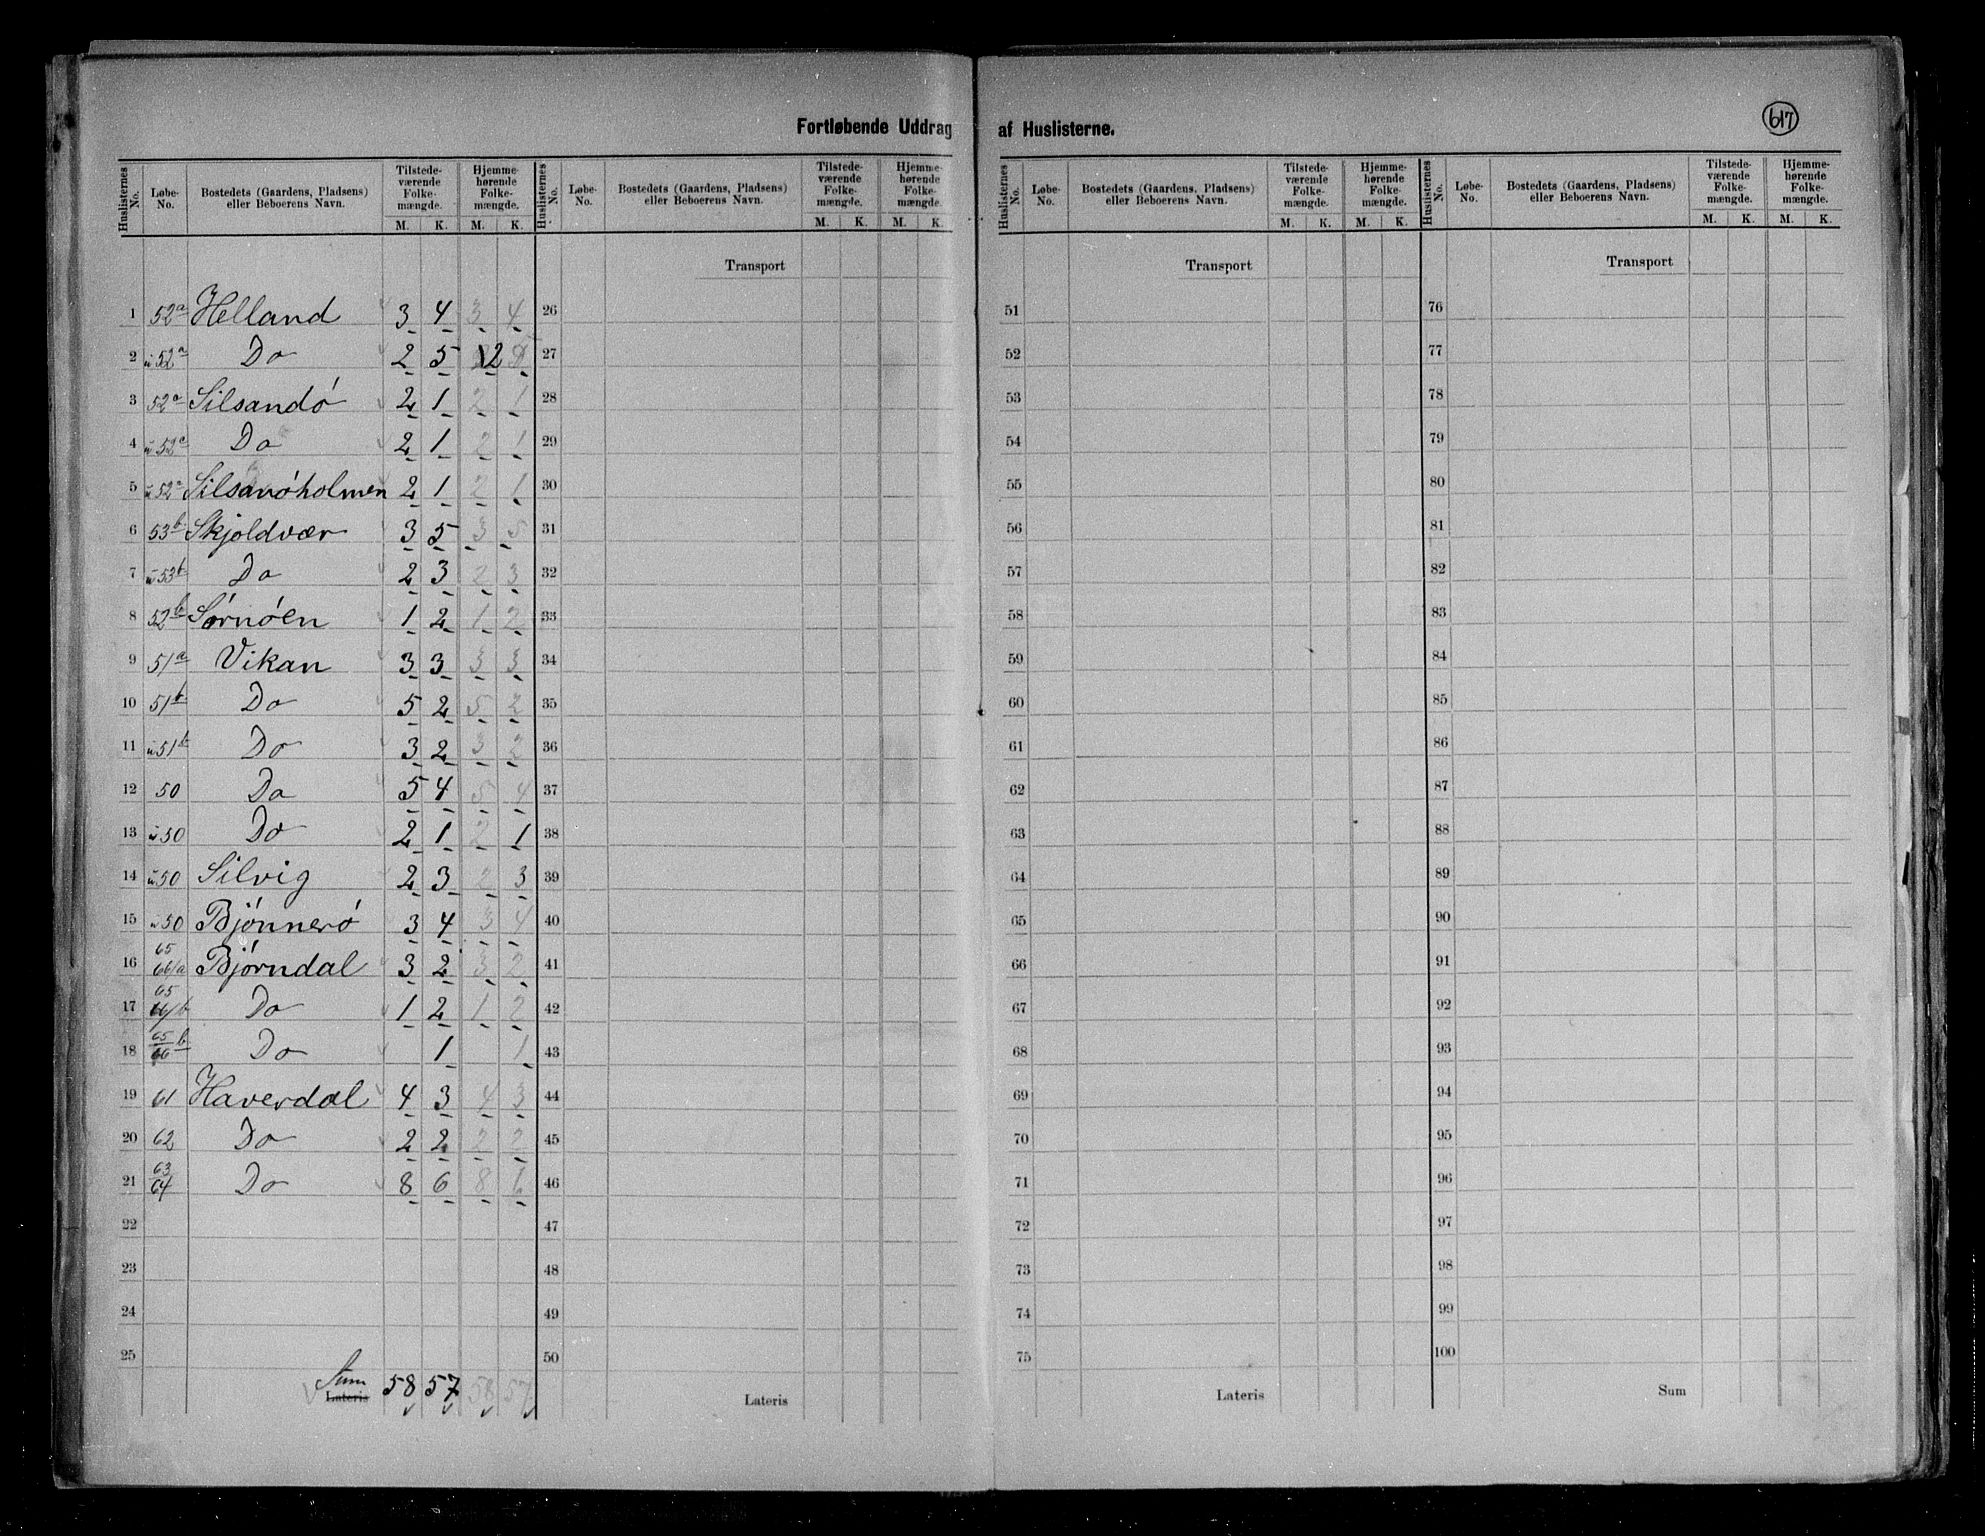 Fortløbende Uddrag af Huslisterne.
617
Huslisternes No. Løbe-No. Bostedets (Gaardens, Pladsens) eller Beboerens Navn. Tilstedeværende Folkemængde. M. K. Hjemmehørende Folkemængde. M. K.
Huslisternes No. Løbe-No. Bostedets (Gaardens, Pladsens) eller Beboerens Navn. Tilstedeværende Folkemængde. M. K. Hjemmehørende Folkemængde. M. K.
Huslisternes No. Løbe-No. Bostedets (Gaardens, Pladsens) eller Beboerens Navn. Tilstedeværende Folkemængde. M. K. Hjemmehørende Folkemængde. M. K.
Huslisternes No. Løbe-No. Bostedets (Gaardens, Pladsens) eller Beboerens Navn. Tilstedeværende Folkemængde. M. K. Hjemmehørende Folkemængde. M. K.
1 52a Helland 3 4 3 4
2 u 52a Do 2 5 2
3 52a Silsandö 2 1 2 1
4 u 52a Do 2 1 2 1
5 u 52a Silsanöholmen 2 1 2 1
6 53b Skjoldvær 3 5 3 5
7 u 53b Do 2 3 2 3
8 52b Sörnöen 1 2 1 2
9 51a Vikan 3 3 3 3
10 51b Do 5 2 5 2
11 u 51b Do 3 2 3 2
12 50 Do 5 4 5 4
13 u 50 Do 2 1 2 1
14 u 50 Silvig 2 3 2 3
15 u 50 Bjönnerö 3 4 3 4
16 65 66/a Björndal 3 2 3 2
17 65 66/b Do 1 2 1 2
18 65 66 b Do 1 1
19 61 Haverdal 4 3 4 3
20 62 Do 2 2 2 2
21 63 64 Do 8 6 8 6
22
23
24
25
Sum Lateris 58 57 58 57
Transport
26
27
28
29
30
31
32
33
34
35
36
37
38
39
40
41
42
43
44
45
46
47
48
49
50
Lateris
Transport
51
52
53
54
55
56
57
58
59
60
61
62
63
64
65
66
67
68
69
70
71
72
73
74
75
Lateris
Transport
76
77
78
79
80
81
82
83
84
85
86
87
88
89
90
91
92
93
94
95
96
97
98
99
100
Sum